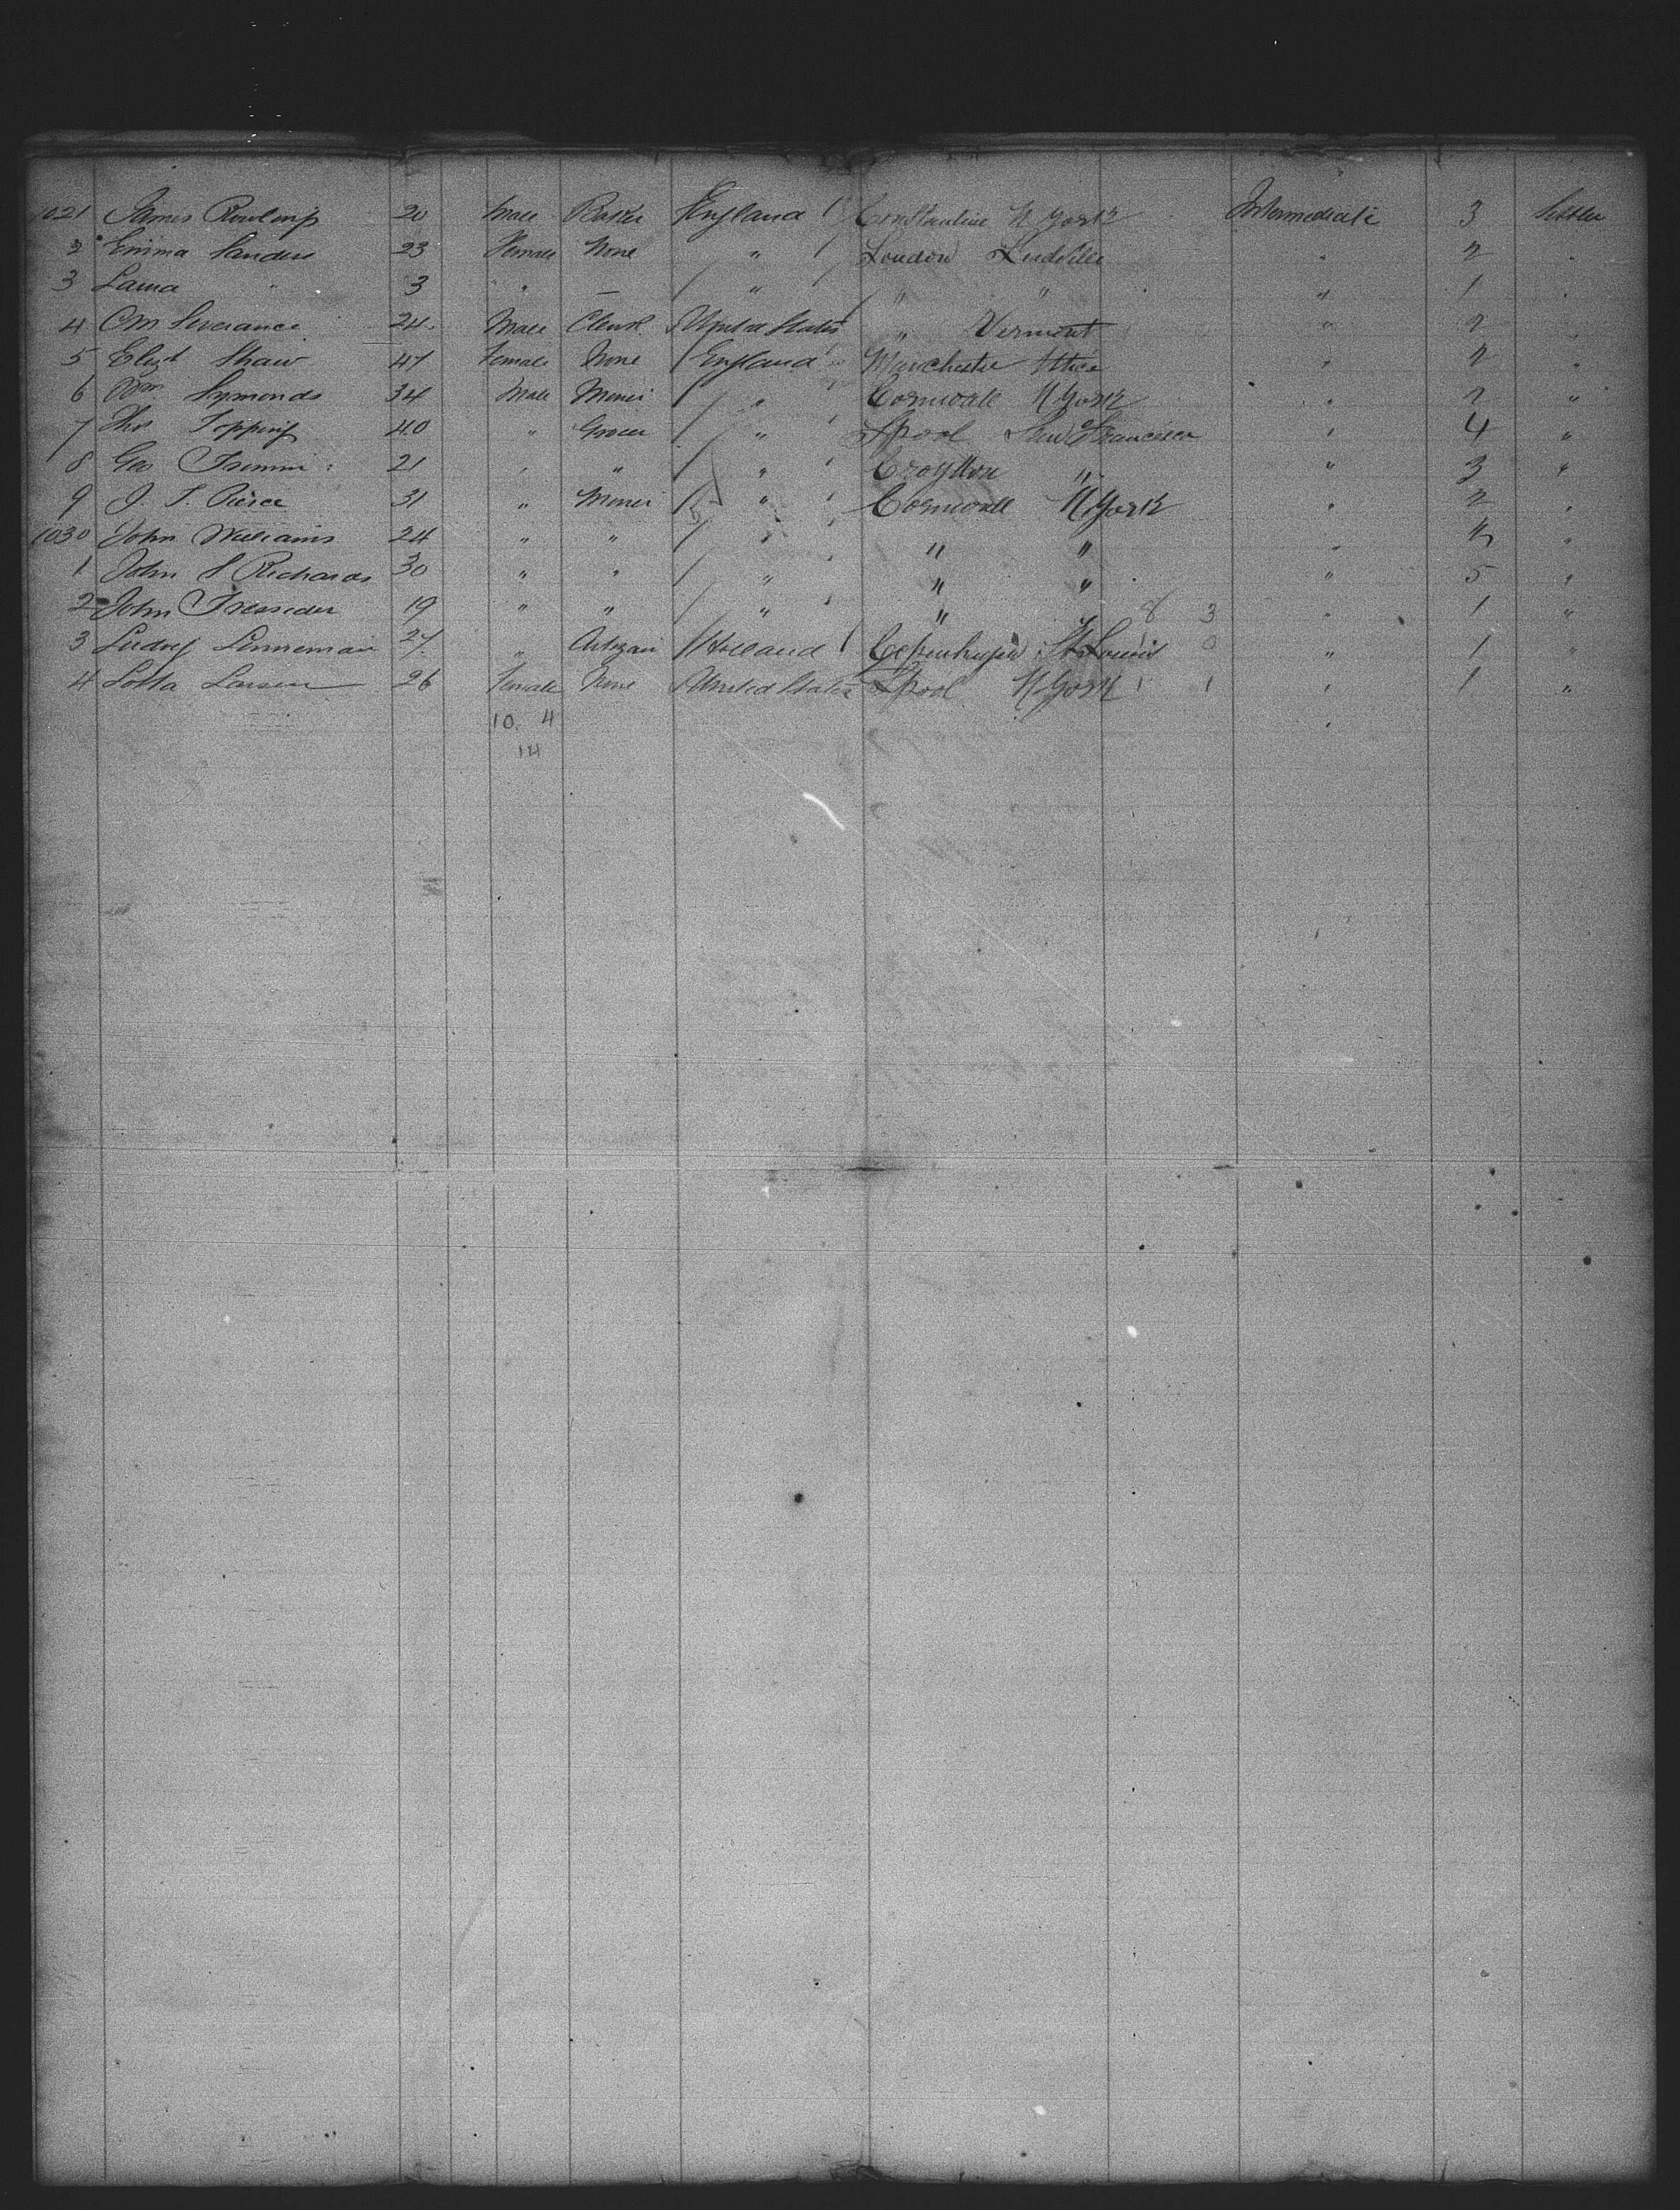 1021 James Rowlings 20 Male Baker England Constantine N York Intermediate 3 Settler
2 Emma Sanders 23 Female None " London " 2 "
3 Laura " 3 " — " " " " 1 "
4 Severance 24 Male Clerk United States " Vermont " 2 "
5 Elizt Shaw 47 Female None England Manchester Utica " 2 "
6 Wm Symonds 34 Male Miner " Cornwall N York " 2 "
7 Thos Topping 40 " Grocer " Lpool San Francisco " 4 "
8 Geo 21 " " " Croydon " " 3 "
9 J. T. Pierce 31 " Miner " Cornwall N York " 2 "
1030 John Williams 24 " " " " " " "
1 John S Richards 30 " " " " " " 5 "
2 John Tresseder 19 " " " " " 8 3 " 1 "
3 Linneman 27 " Artizan Holland Copenhagen St Louis 1 0 " 1 "
4 Lotta Larsen 26 Female None United States Lpool N York 1 1 " 1 "
10 4
14